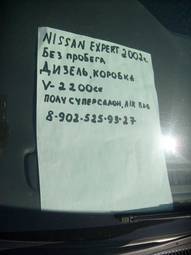 NISSAN EXPERT 2002г.
БЕЗ ПРОБЕГА
ДИЗЕЛЬ, КОРОБКА
V-2200сс
ПОЛУ СУПЕРСАЛОН, AIR
8-902-525-93-27